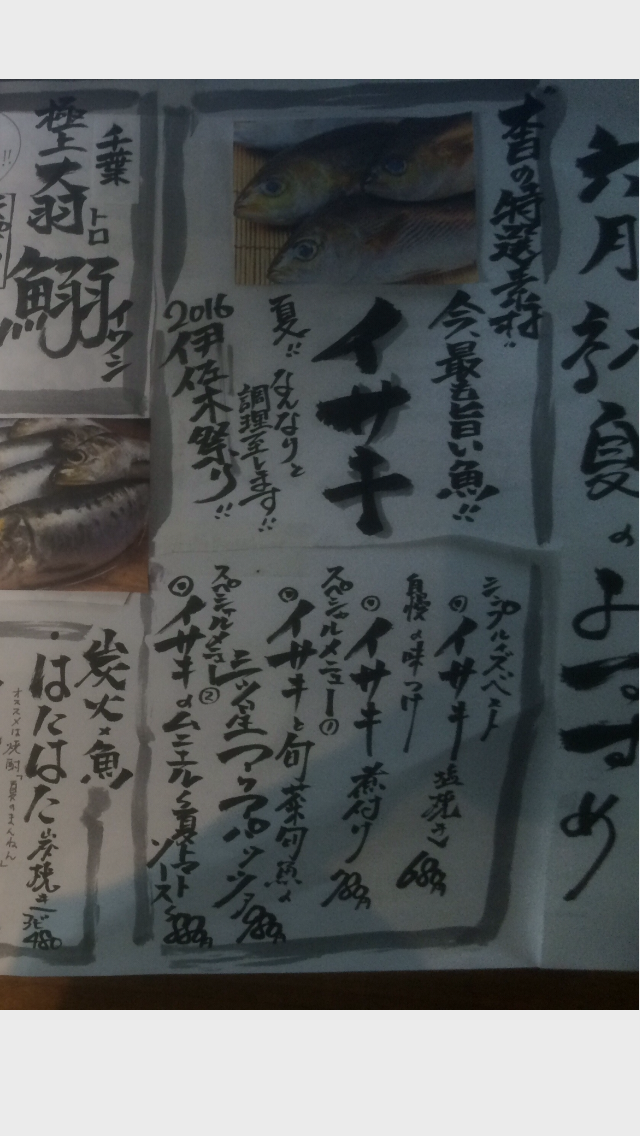 六月初夏のおすすめ
本日の特選素材!!
今、最も旨い魚!!
イサキ
夏!! なんなりと
調理至します!!
2016 伊佐木祭り!!
シンプルイズベスト
イサキ 塩焼き
自慢の味つけ
イサキ 煮付け
スペシャルメニュー①
イサキと旬菜旬魚の
三ツ星アクアパッツァ
スペシャルメニュー②
イサキのムニエル 夏トマト
ソース
千葉
トロ イワシ
極上大羽鰯
炭火×魚
・はたはた 炭焼き 3ピ 480
オススメは焼酎「夏のまんねん」